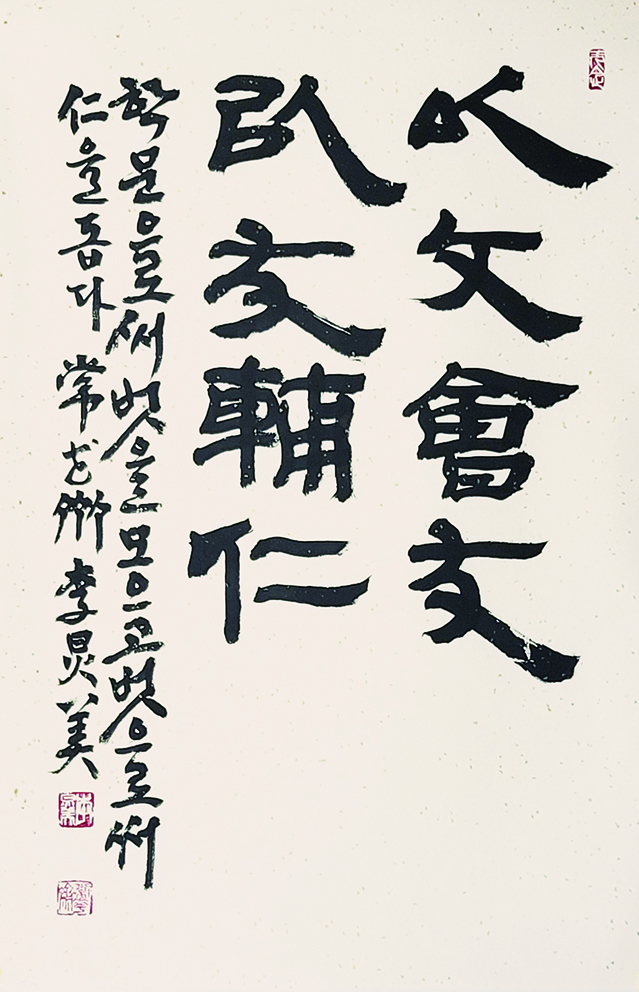 以文會友
以友輔仁
학문으로써 벗을 모으고 벗으로써
仁을 돕다 常 李炅美